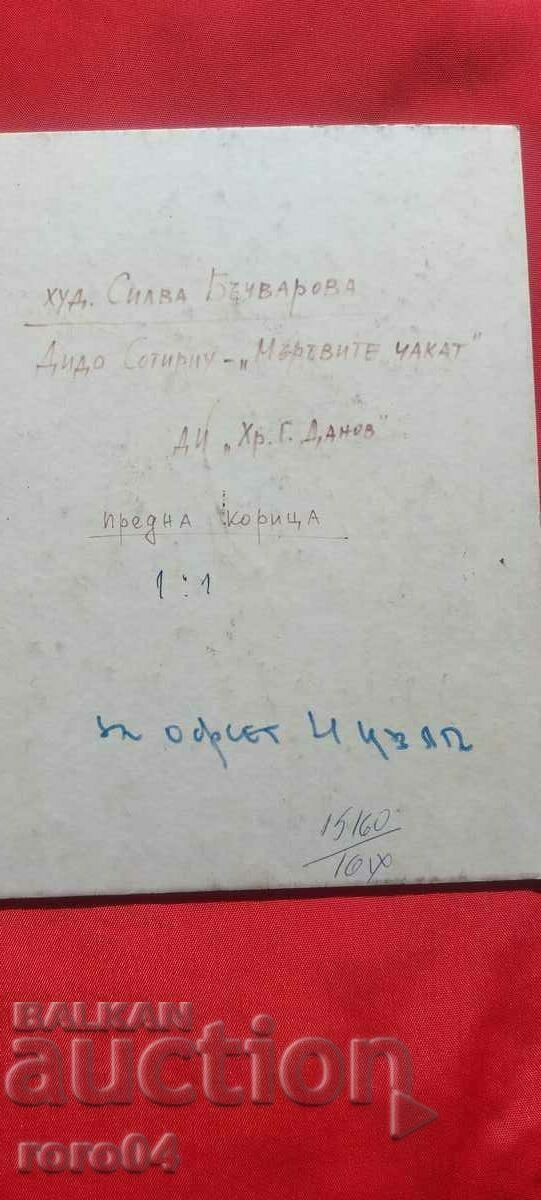 худ. Силва Бъчварова
Дидо Сотириу - „Мъртвите чакат"
ДИ „Хр. Г. Данов"
предна корица
1:1
за офсет 4 цвята
15160
10 IX
BALKAN
auction
roro04